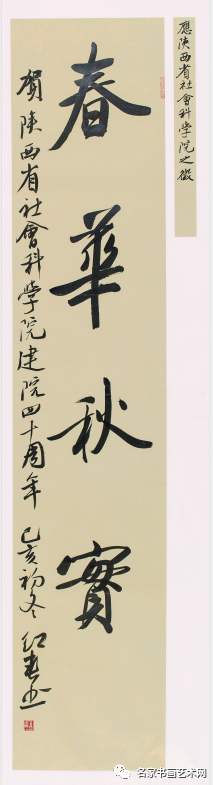 應陝西省社會科學院之徵
春華秋實
賀陝西省社會科學院建院四十周年 己亥初冬 红春书
名家书画艺术网